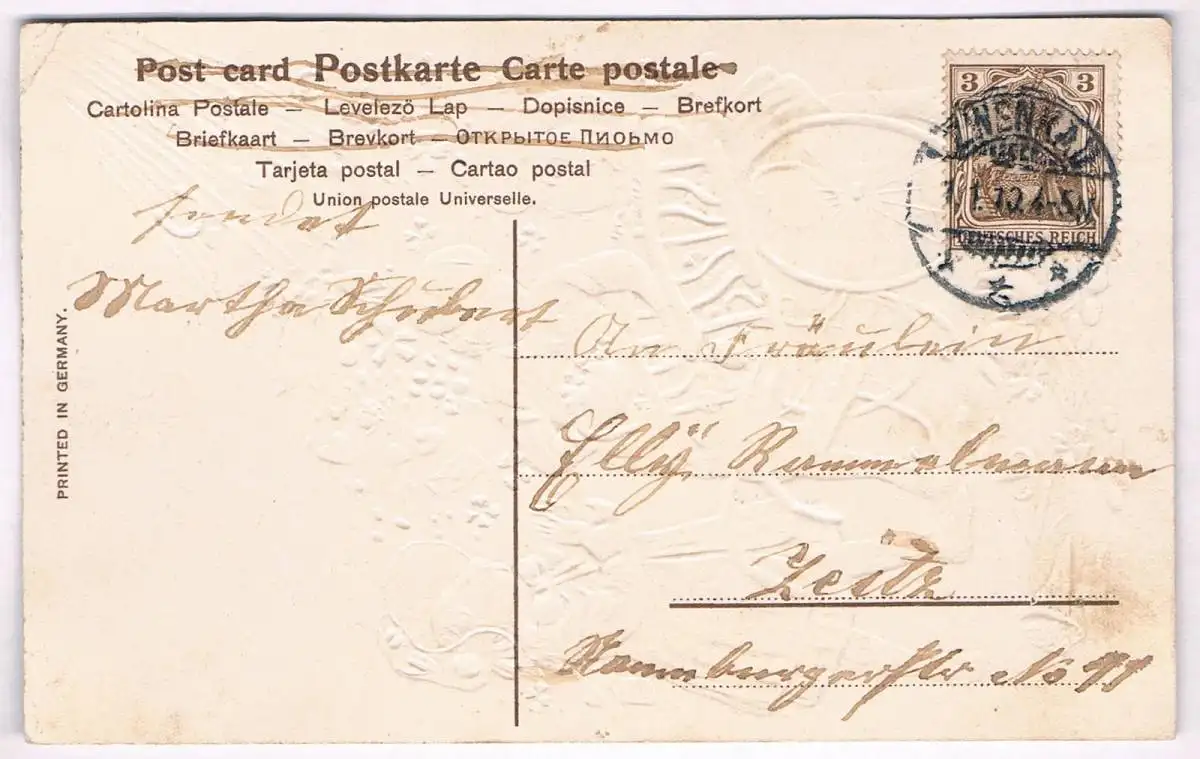 Post card Postkarte Carte postale
Cartolina Postale – Levelező Lap – Dopisnice – Brefkort
Briefkaart – Brevkort – Открытое Письмо
Tarjeta postal – Cartao postal
Union postale Universelle.
sendet
Martha Schubert
PRINTED IN GERMANY.
3 3
DEUTSCHES REICH
1.10.4-5
An Fräulein
Elly Rammelmann
Zeitz
Naumburgerstr No 11